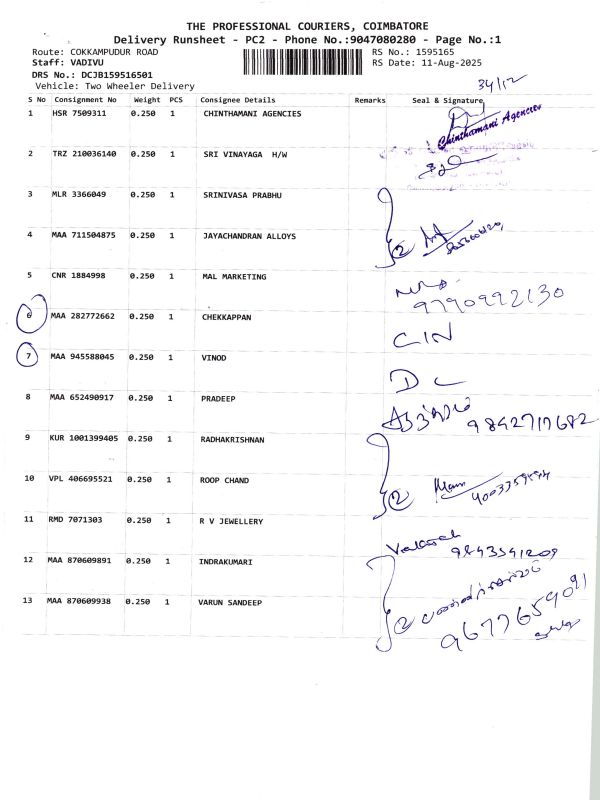 THE PROFESSIONAL COURIERS, COIMBATORE
Delivery Runsheet - PC2 - Phone No.:9047080280 - Page No.:1
Route: COKKAMPUDUR ROAD RS No.: 1595165
Staff: VADIVU RS Date: 11-Aug-2025
DRS No.: DCJB159516501
Vehicle: Two Wheeler Delivery 34/12
S No Consignment No Weight PCS Consignee Details Remarks Seal & Signature
1 HSR 7509311 0.250 1 CHINTHAMANI AGENCIES Chinthamani Agencies
2 TRZ 210036140 0.250 1 SRI VINAYAGA H/W
3 MLR 3366049 0.250 1 SRINIVASA PRABHU
4 MAA 711504875 0.250 1 JAYACHANDRAN ALLOYS 2
5 CNR 1884998 0.250 1 MAL MARKETING
9790992130
6 MAA 282772662 0.250 1 CHEKKAPPAN C/N
7 MAA 945588045 0.250 1 VINOD D L
8 MAA 652490917 0.250 1 PRADEEP 9842717682
9 KUR 1001399405 0.250 1 RADHAKRISHNAN
10 VPL 406695521 0.250 1 ROOP CHAND 2
11 RMD 7071303 0.250 1 R V JEWELLERY
9843541209
12 MAA 870609891 0.250 1 INDRAKUMARI
13 MAA 870609938 0.250 1 VARUN SANDEEP 2
9677659091